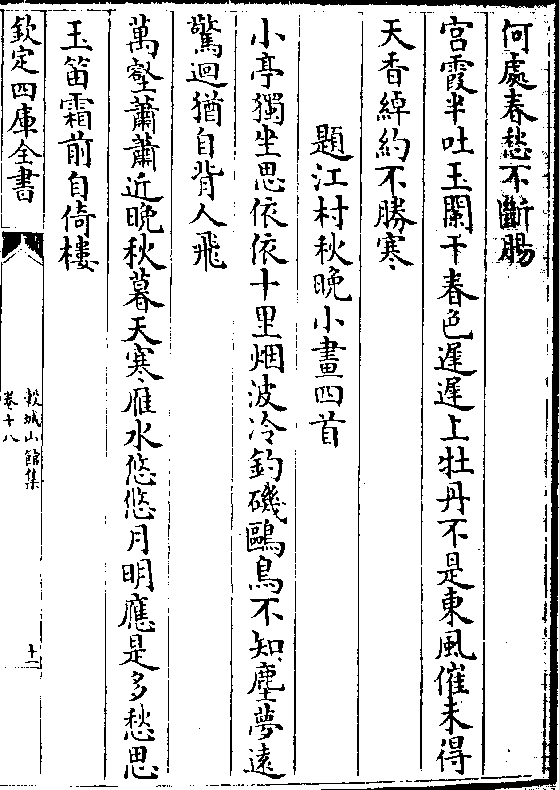 何處春愁不斷腸
宫霞半吐玉闌干春色遲遲上牡丹不是東風催未得
天香綽約不勝寒
題江村秋晚小畫四首
小亭獨坐思依依十里烟波冷釣磯鷗鳥不知塵夢遠
驚迴猶自背人飛
萬壑蕭蕭近晚秋暮天寒雁水悠悠月明應是多愁思
玉笛霜前自倚樓
欽定四庫全書
穀城山館集
卷十八
十二